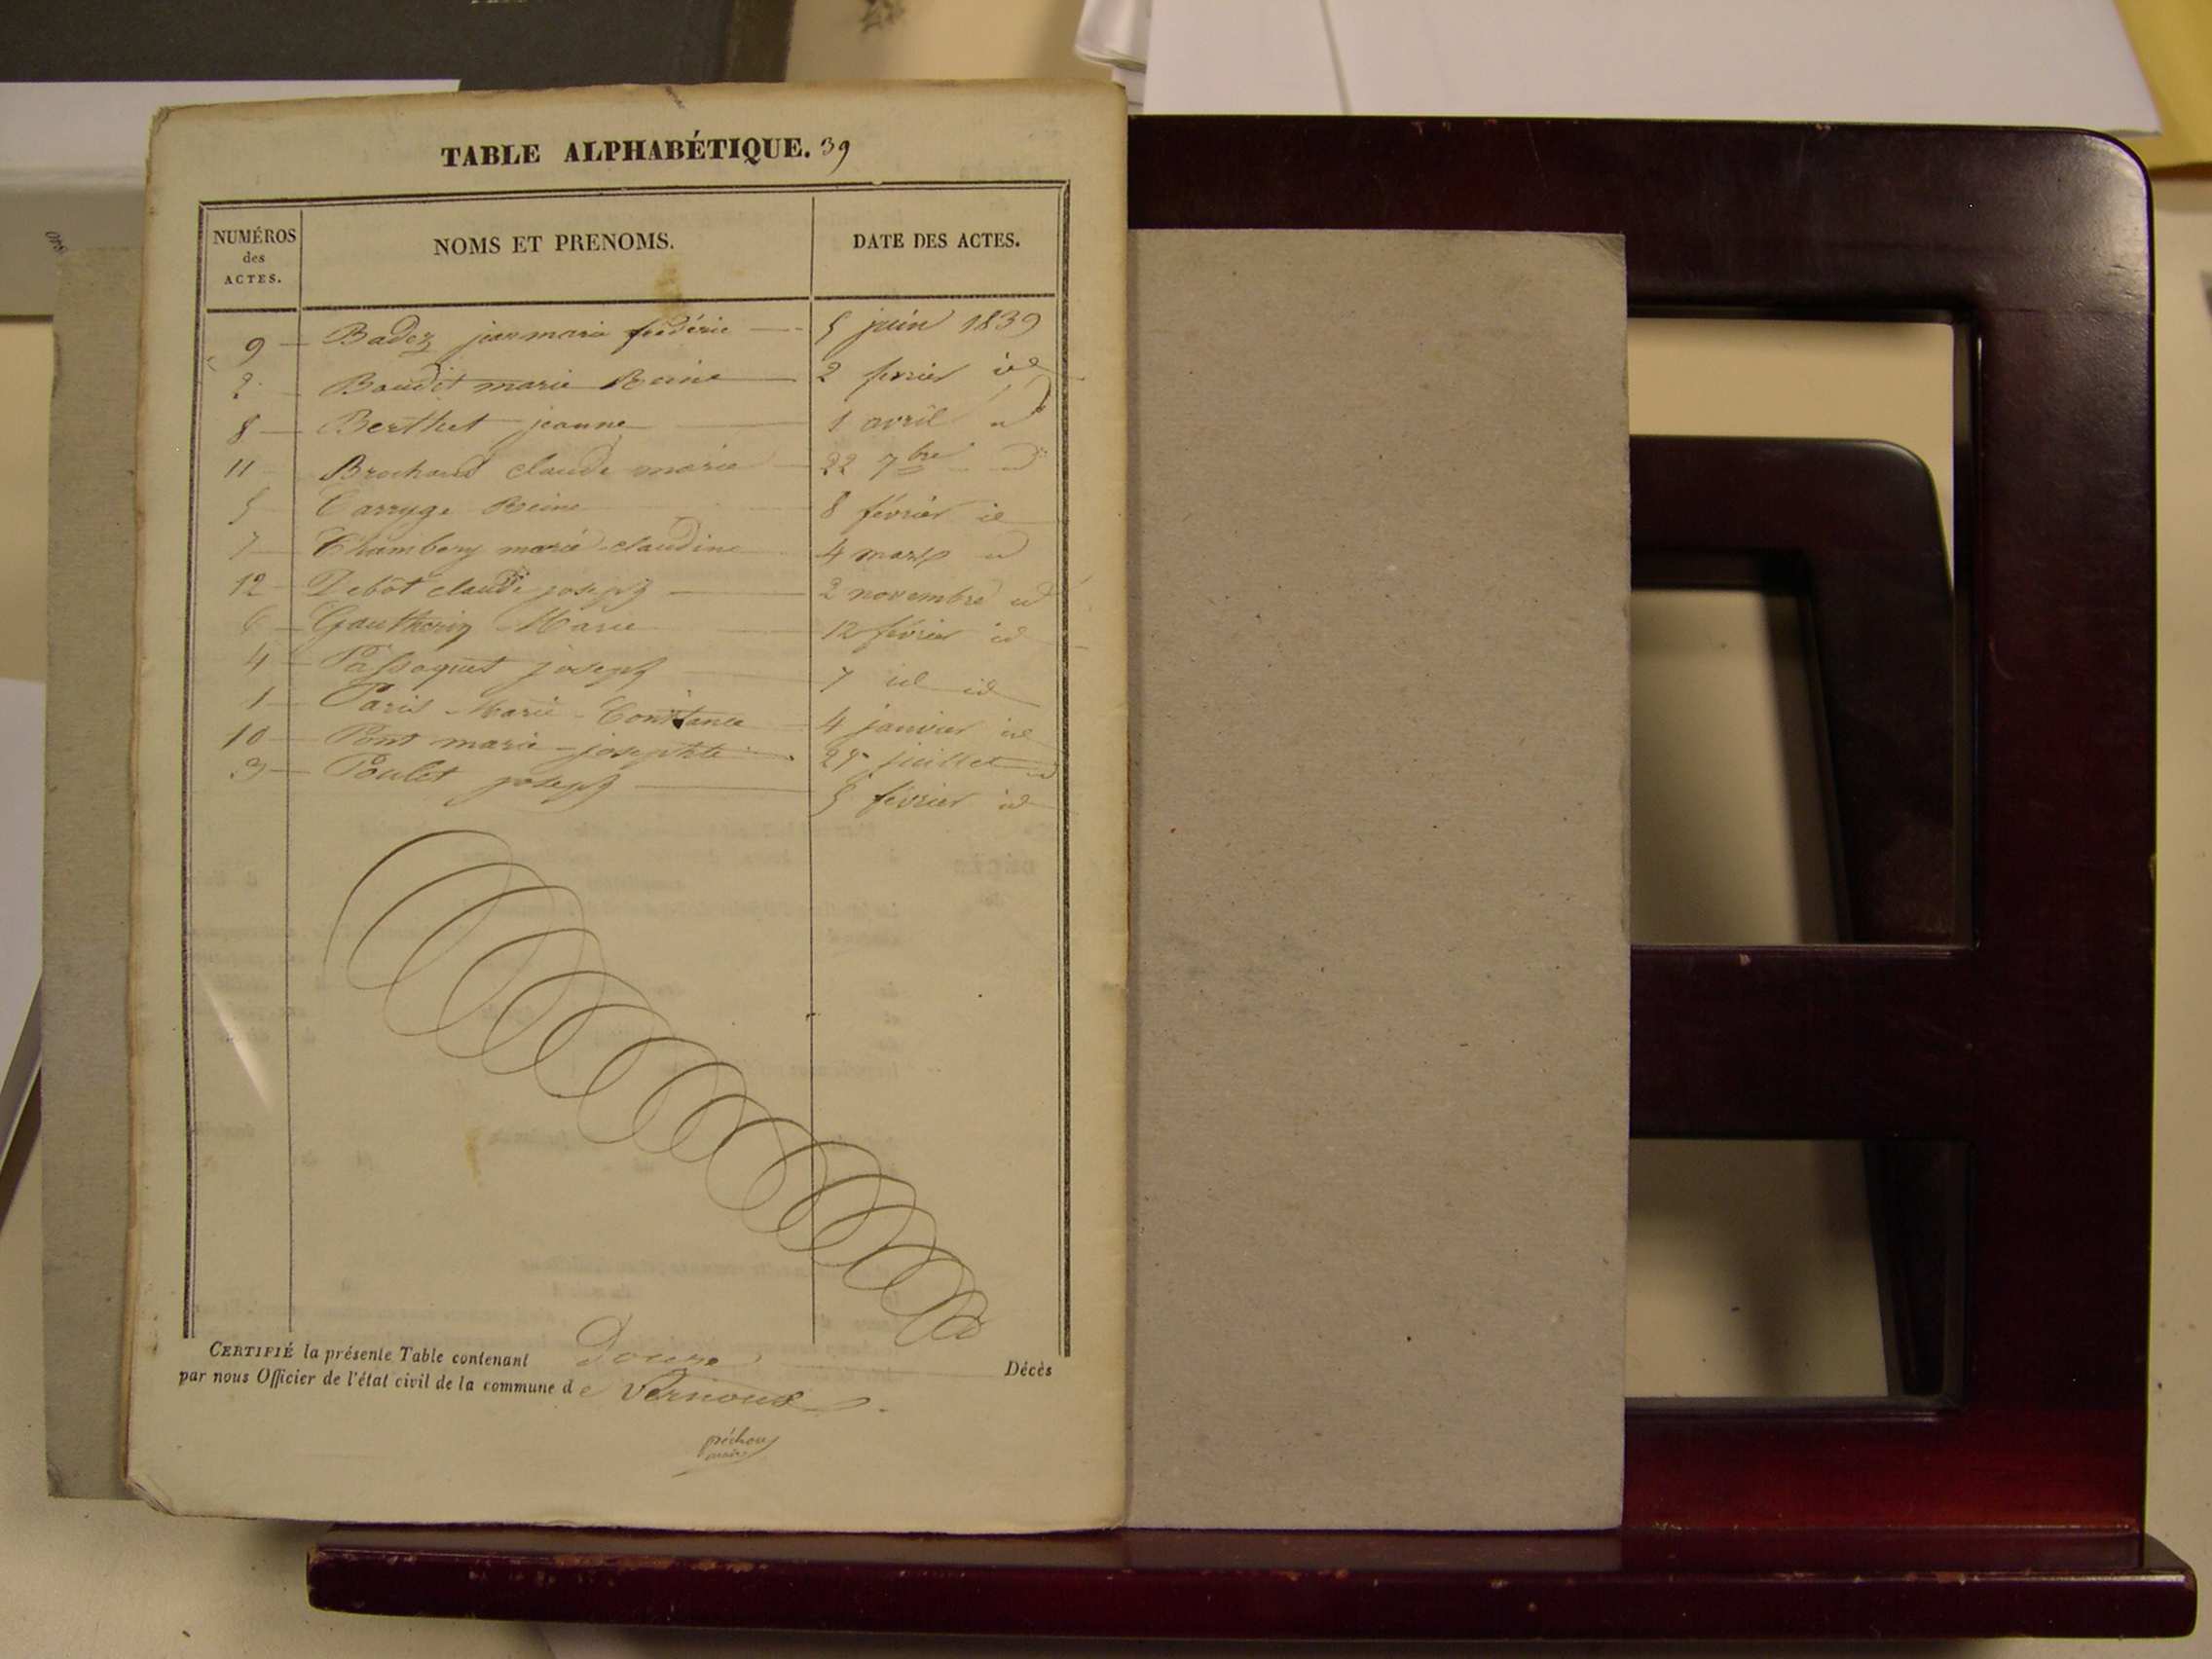 TABLE ALPHABÉTIQUE. 39
NUMÉROS des ACTES. NOMS ET PRENOMS. DATE DES ACTES.
9 — Badez jean marie frédéric — 5 juin 1839
2 — Baudet marie Reine — 2 fevrier id
8 — Berthet jeanne — 1 avril id
11 — Brochand claude marie — 22 7bre id
5 — Carryge Reine 8 février id
7 — Chambery marie claudine 4 mars id
12 — Debôt claude joseph — 2 novembre id
6 — Gautherin Marie — 12 février id
4 — Passaquet joseph — 7 id id
1 — Paris Marie Constance — 4 janvier id
10 — Pont marie josephte 25 juillet id
3 — Poulet joseph — 5 février id
CERTIFIÉ la présente Table contenant Douze Décès
par nous Officier de l'état civil de la commune de Vernoux
préchoux
maire